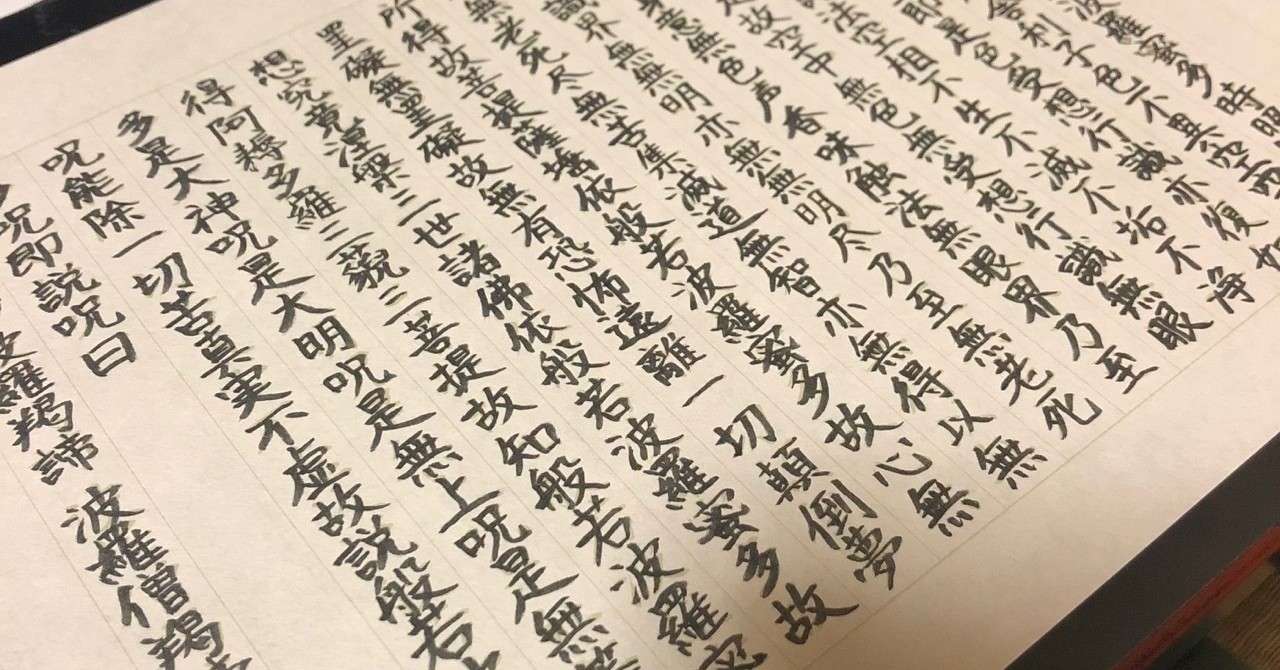 波羅蜜多時照
舎利子色不異空空
即是色受想行識亦復如
法空相不生不滅不垢不浄
是故空中無色無受想行識無眼
身意無色声香味触法無眼界乃至
識界無無明亦無無明尽乃至無老死
無老死尽無苦集滅道無智亦無得以無
所得故菩提薩埵依般若波羅蜜多故心無
罣礙無罣礙故無有恐怖遠離一切顛倒夢
想究竟涅槃三世諸佛依般若波羅蜜多故
得阿耨多羅三藐三菩提故知般若波羅蜜
多是大神呪是大明呪是無上呪是無等
呪能除一切苦真実不虚故説般若
多呪即説呪曰
波羅羯諦 波羅僧羯諦